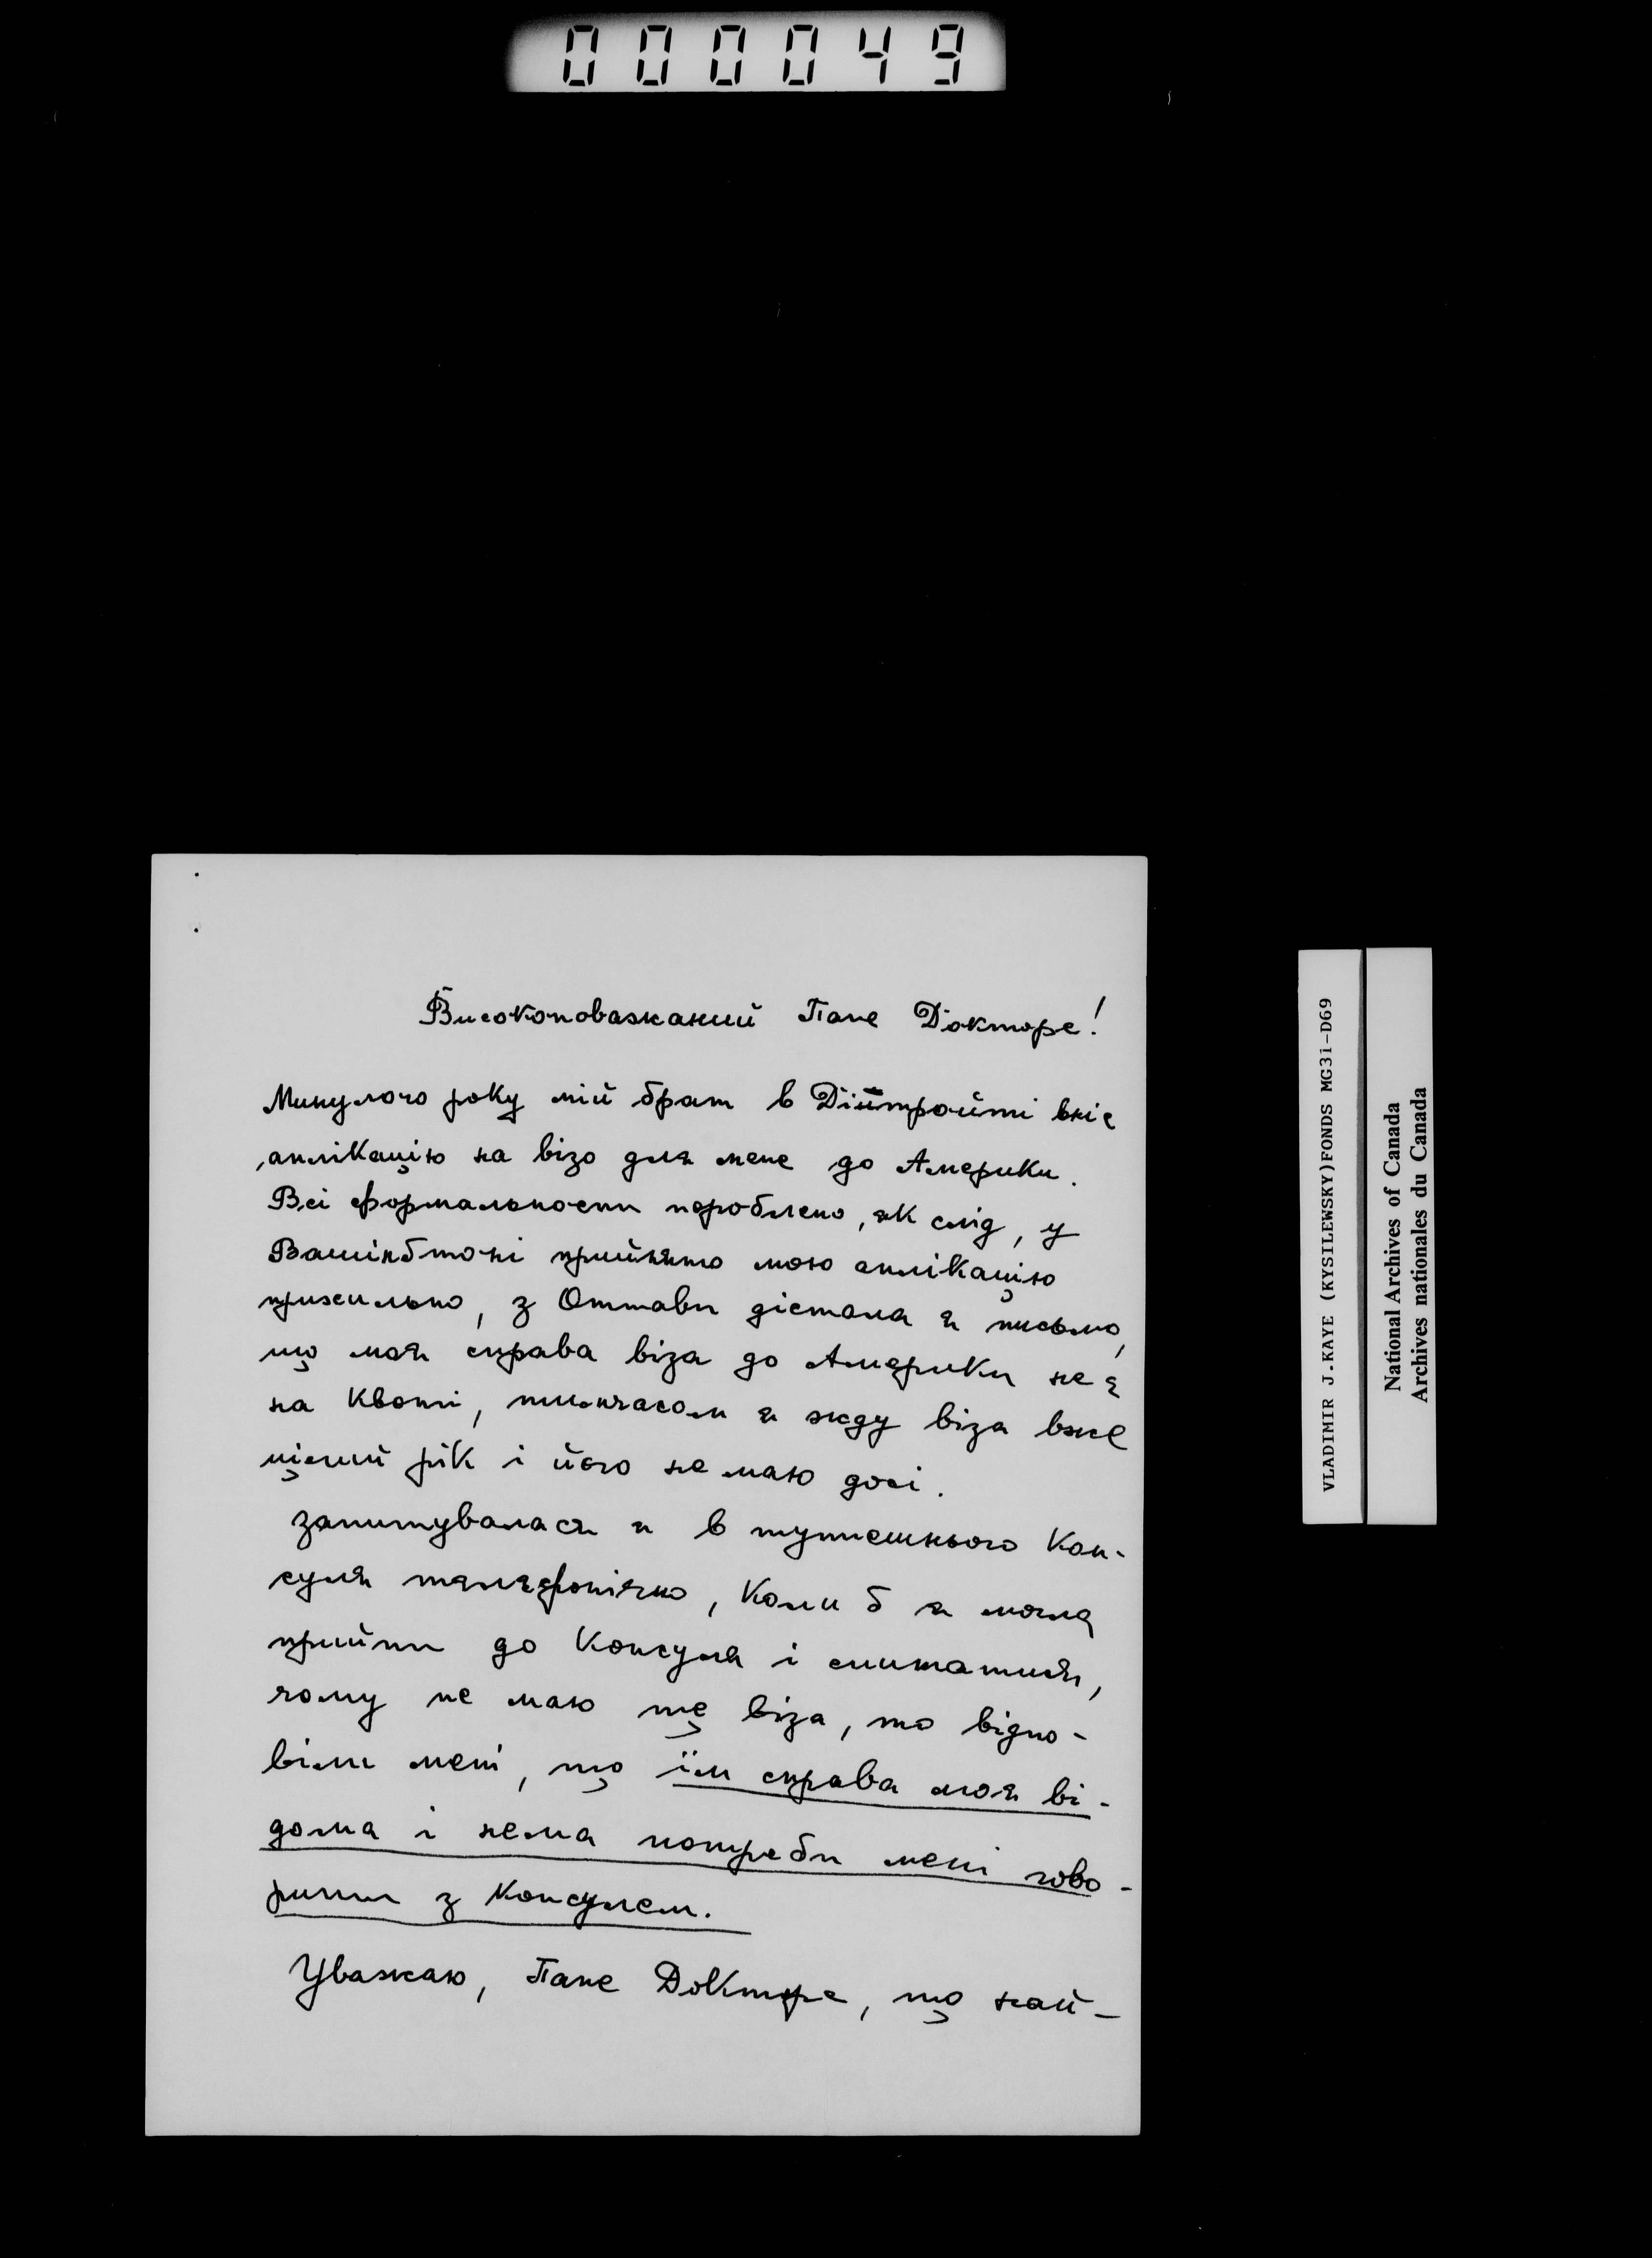 000049
Високоповажаний Пане Докторе!
Минулого року мій брат в Дітройті вніс
аплікацію на візо для мене до Америки.
Всі формальности пороблено, як слід, у
Вашінґтоні прийнято мою аплікацію
прихильно, з Оттави дістала я письмо,
що моя справа віза до Америки не є
на квоті, тимчасом я жду віза вже
цілий рік і його не маю досі.
Запитувалася я в тутешнього Кон-
суля телєфонічно, коли б я могла
прийти до Консуля і спитатися,
чому не маю ще віза, то відпо-
віли мені, що їм справа моя ві-
дома і нема потреби мені гово-
рити з Консулем.
Уважаю, Пане Докторе, що най-
VLADIMIR J.KAYE (KYSILEWSKY)FONDS MG31-D69
National Archives of Canada
Archives nationales du Canada